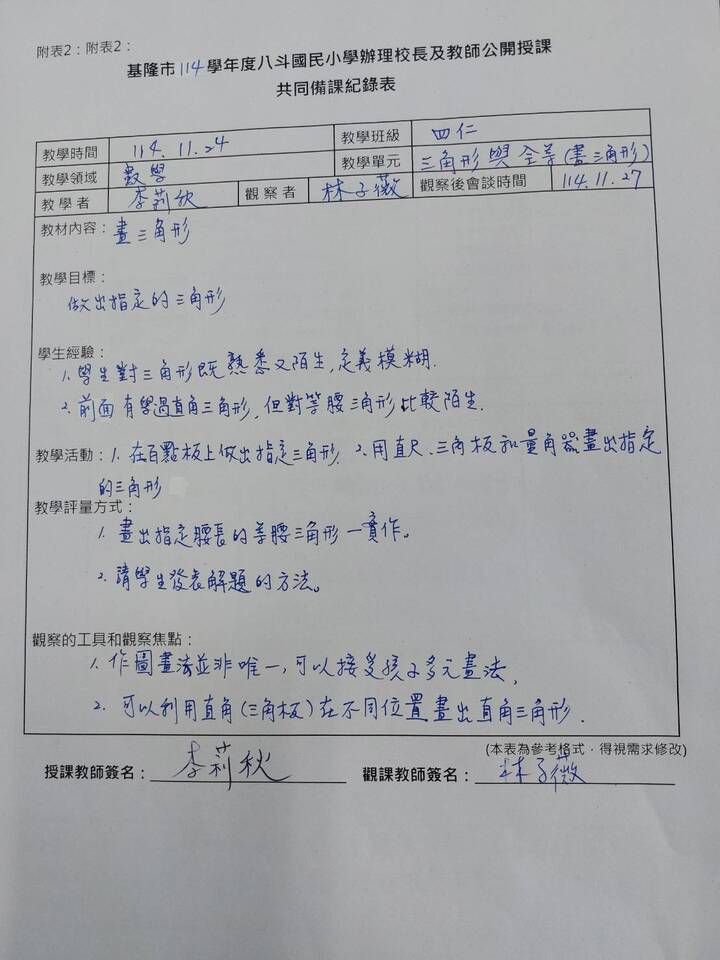 附表2：附表2：
基隆市 114 學年度八斗國民小學辦理校長及教師公開授課
共同備課紀錄表
教學時間 114.11.24 教學班級 四仁
教學領域 數學 教學單元 三角形與全等(畫三角形)
教學者 李莉秋 觀察者 林子薇 觀察後會談時間 114.11.27
教材內容：畫三角形
教學目標：
做出指定的三角形
學生經驗：
1. 學生對三角形既熟悉又陌生,定義模糊.
2. 前面有學過直角三角形,但對等腰三角形比較陌生.
教學活動：1. 在百點板上做出指定三角形. 2. 用直尺、三角板和量角器畫出指定
的三角形
教學評量方式：
1. 畫出指定腰長的等腰三角形—實作。
2. 請學生發表解題的方法。
觀察的工具和觀察焦點：
1. 作圖畫法並非唯一,可以接受孩子多元畫法,
2. 可以利用直角(三角板)在不同位置畫出直角三角形.
(本表為參考格式，得視需求修改)
授課教師簽名：李莉秋 觀課教師簽名：林子薇